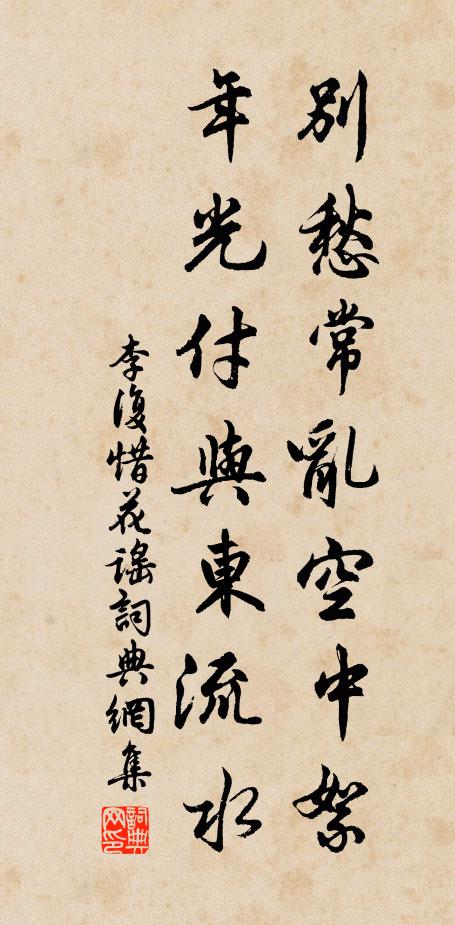 別愁常亂空中絮
年光付與東流水
李復惜花謠詞典網集
詞典网印